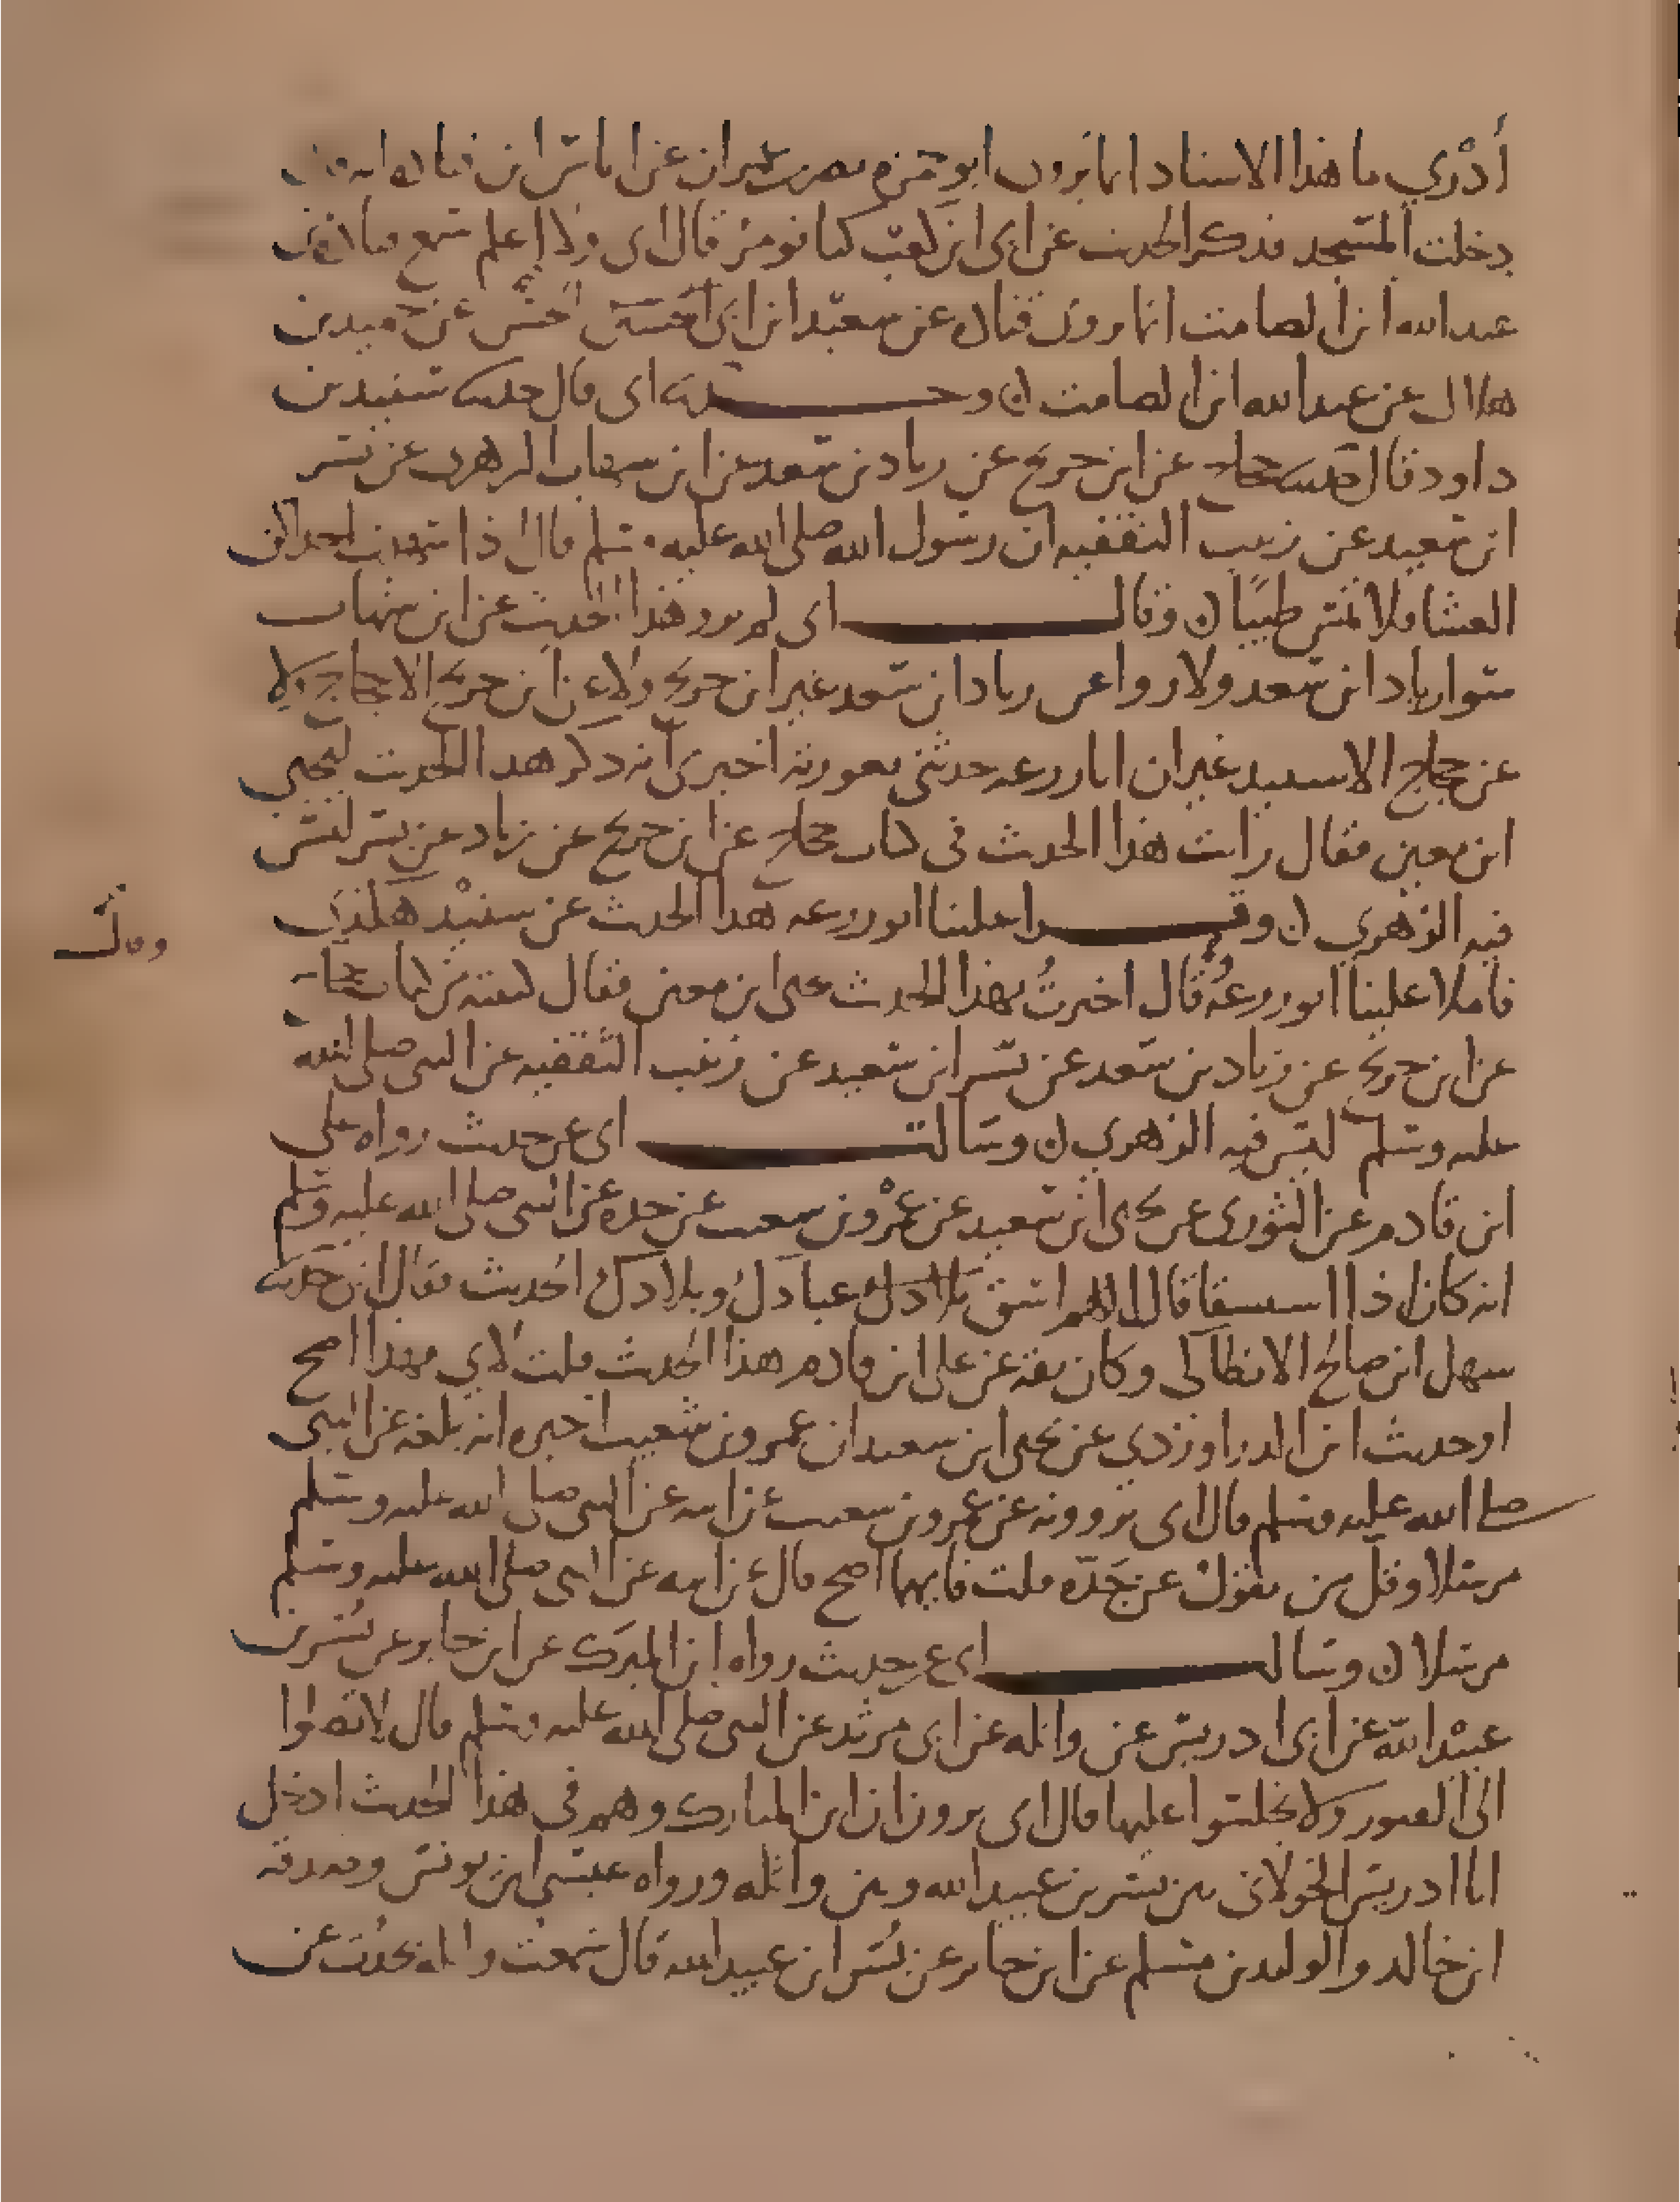 أدري ما هذا الاسناد انما يروون ابو حمزه نصر بن عمران عن اياس ابن قتاده انه قال
دخلت المسجد فذكر الحديث عن ابي ابن كعب كنا نومر قال ابي ولا اعلم سمع من
عبد الله ابن الصامت انما يروون قتال عن سعيد ابن ابي الحسن اخي الحسن عن حميد بن
هلال عن عبد الله ابن الصامت ن وحدثنا ابي قال حدثنا سنيد بن
داود قال حدثنا حجاج عن ابن جريج عن زياد بن سعد عن ابن شهاب الزهري عن بسر
ابن سعيد عن زينب الثقفيه ان رسول الله صلى الله عليه وسلم قال اذا شهدت احداكن
العشا فلا تمس طيبًا ن وقال ابي لم يرو هذا الحديث عن ابن شهاب
سوا زياد ابن سعد ولا روا عن زياد ابن سعد غير ابن جريج ولا عن ابن جريج الا حجاج ولا
عن حجاج الا سنيد غير ان ابا زرعه حدثني بعورته اخبرني انه ذكر هذا الحديث ليحيى
ابن معين فقال رايت هذا الحديث في كتاب حجاج عن ابن جريج عن زياد عن بسر ليس
فيه الزهري ن وقرا علينا ابو زرعه هذا الحديث عن سنيد هكذى
فاملا علينا ابو زرعه قال اخبرت بهذا الحديث يحيى ابن معين فقال كتبته من كتاب حجاج
عن ابن جريج عن زياد بن سعد عن بسر ابن سعيد عن زينب الثقفيه عن النبي صلى الله
عليه وسلم ليس فيه الزهري ن وسالت ابي عن حديث رواه علي
ابن قادم عن الثوري عن يحيى ابن سعيد عن عمرو بن شعيب عن جده عن النبي صلى الله عليه وسلم
انه كان اذا استسقا قال اللهم اسق بلادك عبادك وبلادك الحديث فقال ابي حدثنا
سهل ابن صالح الانطاكي وكان ثقه عن علي ابن قادم هذا الحديث قلت لابي فهذا اصح
او حديث ابن الدراوردي عن يحيى ابن سعيد ان عمرو بن شعيب اخبره انه بلغه عن النبي
صلى الله عليه وسلم قال ابي يروونه عن عمرو بن شعيب عن ابيه عن النبي صلى الله عليه وسلم
مرسلا وقل من يقول عن جَدّه قلت فايهما اصح قال عن ابيه عن النبي صلى الله عليه وسلم
مرسلا ن وسالت ابي عن حديث رواه ابن المبرك عن ابن جابر عن بسر بن
عبيد الله عن ابي ادريس عن واثله عن ابي مرثد عن النبي صلى الله عليه وسلم قال لا تصلوا
الى القبور ولا تجلسوا عليها قال ابي يرون ان ابن المبارك وهم في هذا الحديث ادخل
ابا ادريس الخولاني بين بسر بن عبيد الله وبين واثله ورواه عيسى ابن يونس وصدقه
ابن خالد والوليد بن مسلم عن ابن جابر عن بسر ابن عبيد الله قال سمعت واثله يحدث عن